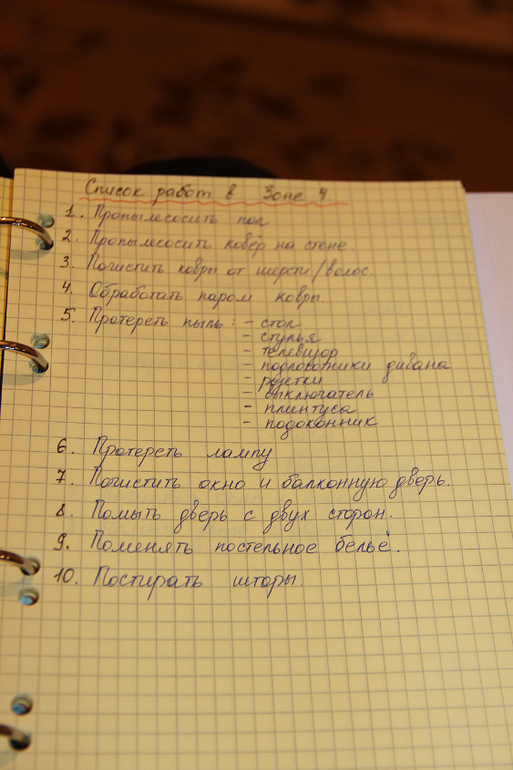 Список работ в Зоне 4
1. Пропылесосить пол
2. Пропылесосить ковёр на стене.
3. Почистить ковры от шерсти/волос
4. Обработать паром ковры.
5. Протереть пыль: - стол
- стулья
- телевизор
- подлокотники дивана
- розетки
- выключатель
- плинтуса
- подоконник
6. Протереть лампу
7. Почистить окно и балконную дверь.
8. Помыть дверь с двух сторон.
9. Поменять постельное бельё.
10. Постирать шторы.